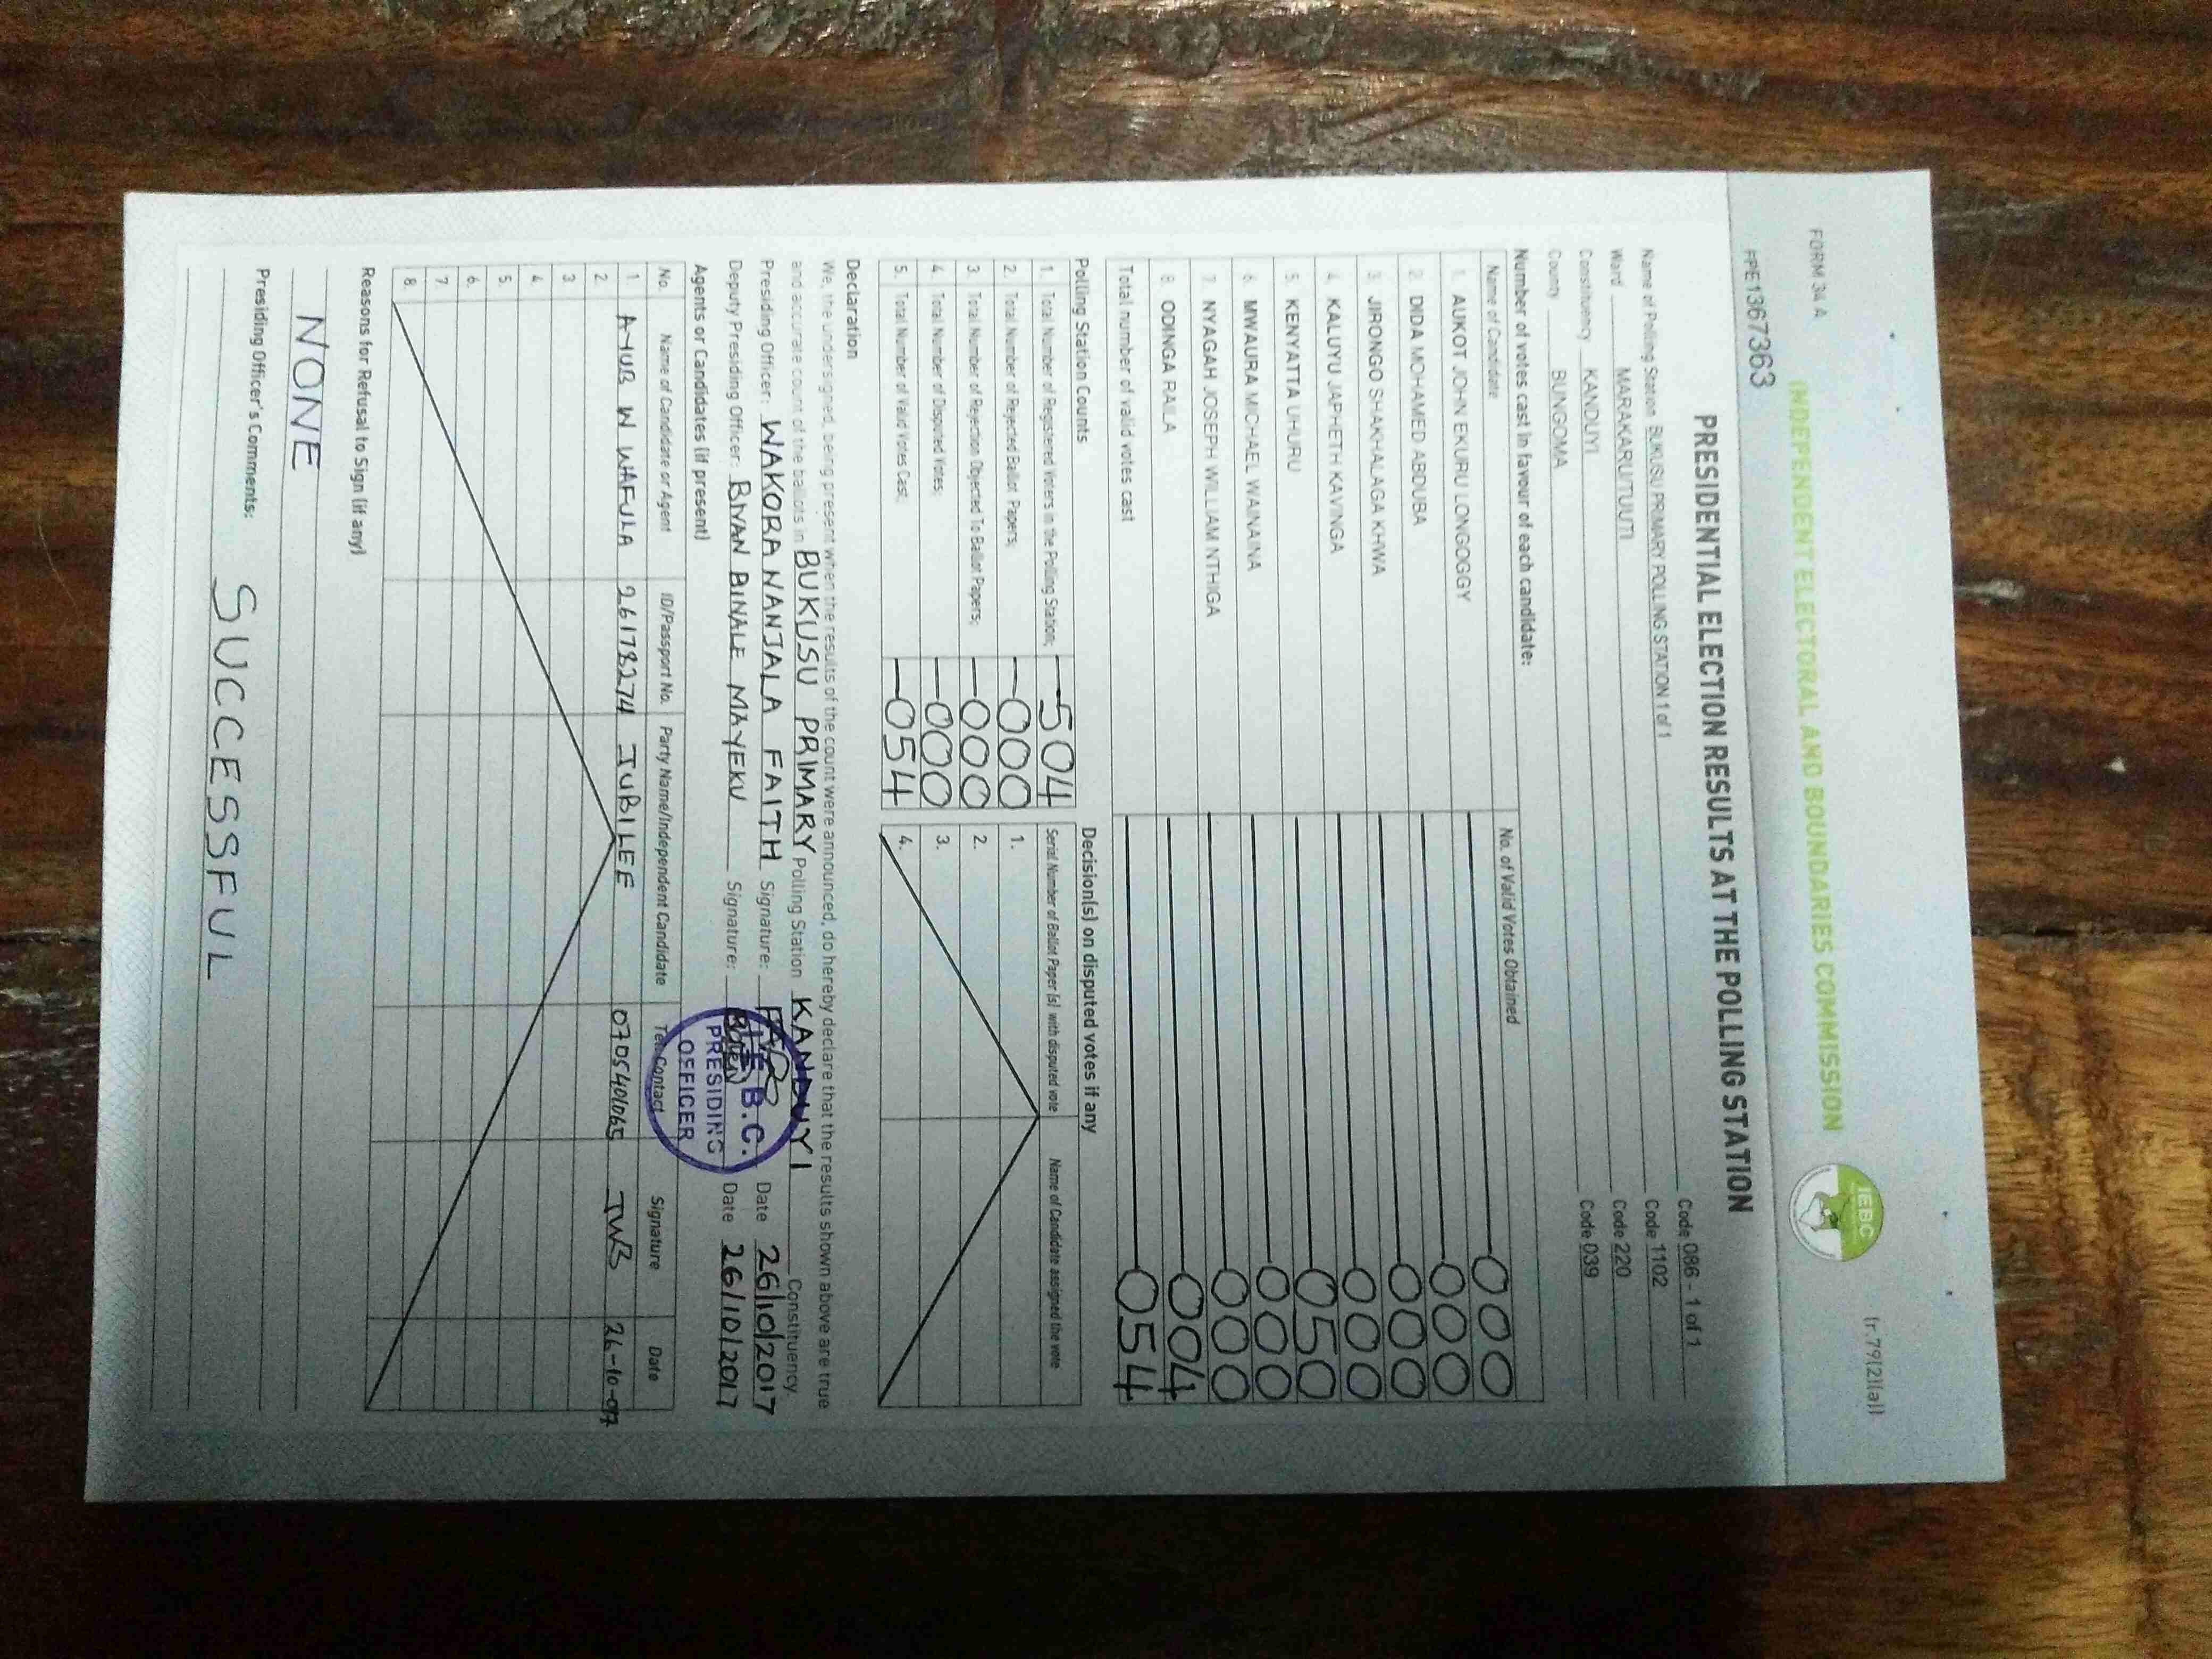 FORM 34 A
(r.79(2)(a))
INDEPENDENT ELECTORAL AND BOUNDARIES COMMISSION
IEBC
PPE1367363
PRESIDENTIAL ELECTION RESULTS AT THE POLLING STATION
Name of Polling Station BUKUSU PRIMARY POLLING STATION 1 of 1 Code 086 - 1 of 1
Ward MARAKARU/TUUTI Code 1102
Constituency KANDUYI Code 220
County BUNGOMA Code 039
Number of votes cast in favour of each candidate:
Name of Candidate No. of Valid Votes Obtained
1. AUKOT JOHN EKURU LONGOGGY 000
2. DIDA MOHAMED ABDUBA 000
3. JIRONGO SHAKHALAGA KHWA 000
4. KALUYU JAPHETH KAVINGA 000
5. KENYATTA UHURU 050
6. MWAURA MICHAEL WAINAINA 000
7. NYAGAH JOSEPH WILLIAM NTHIGA 000
8. ODINGA RAILA 004
Total number of valid votes cast 054
Polling Station Counts
1. Total Number of Registered Voters in the Polling Station; 504
2. Total Number of Rejected Ballot Papers; 000
3. Total Number of Rejection Objected To Ballot Papers; 000
4. Total Number of Disputed Votes; 000
5. Total Number of Valid Votes Cast; 054
Decision(s) on disputed votes if any
Serial Number of Ballot Paper (s) with disputed vote Name of Candidate assigned the vote
1.
2.
3.
4.
Declaration
We, the undersigned, being present when the results of the count were announced, do hereby declare that the results shown above are true
and accurate count of the ballots in BUKUSU PRIMARY Polling Station KANDUYI Constituency
Presiding Officer: WAKORA NANJALA FAITH Signature: Date 26/10/2017
Deputy Presiding Officer: BIVAN BINALE MAYEKU Signature: Date 26/10/2017
I.E.B.C.
PRESIDING
OFFICER
Agents or Candidates (if present)
No. Name of Candidate or Agent ID/Passport No. Party Name/Independent Candidate Tel. Contact Signature Date
1 AYUB W WAFULA 26178274 JUBILEE 0705401065 26-10-017
2.
3
4
5.
6.
7.
8.
Reasons for Refusal to Sign (if any)
NONE
Presiding Officer's Comments:
SUCCESSFUL